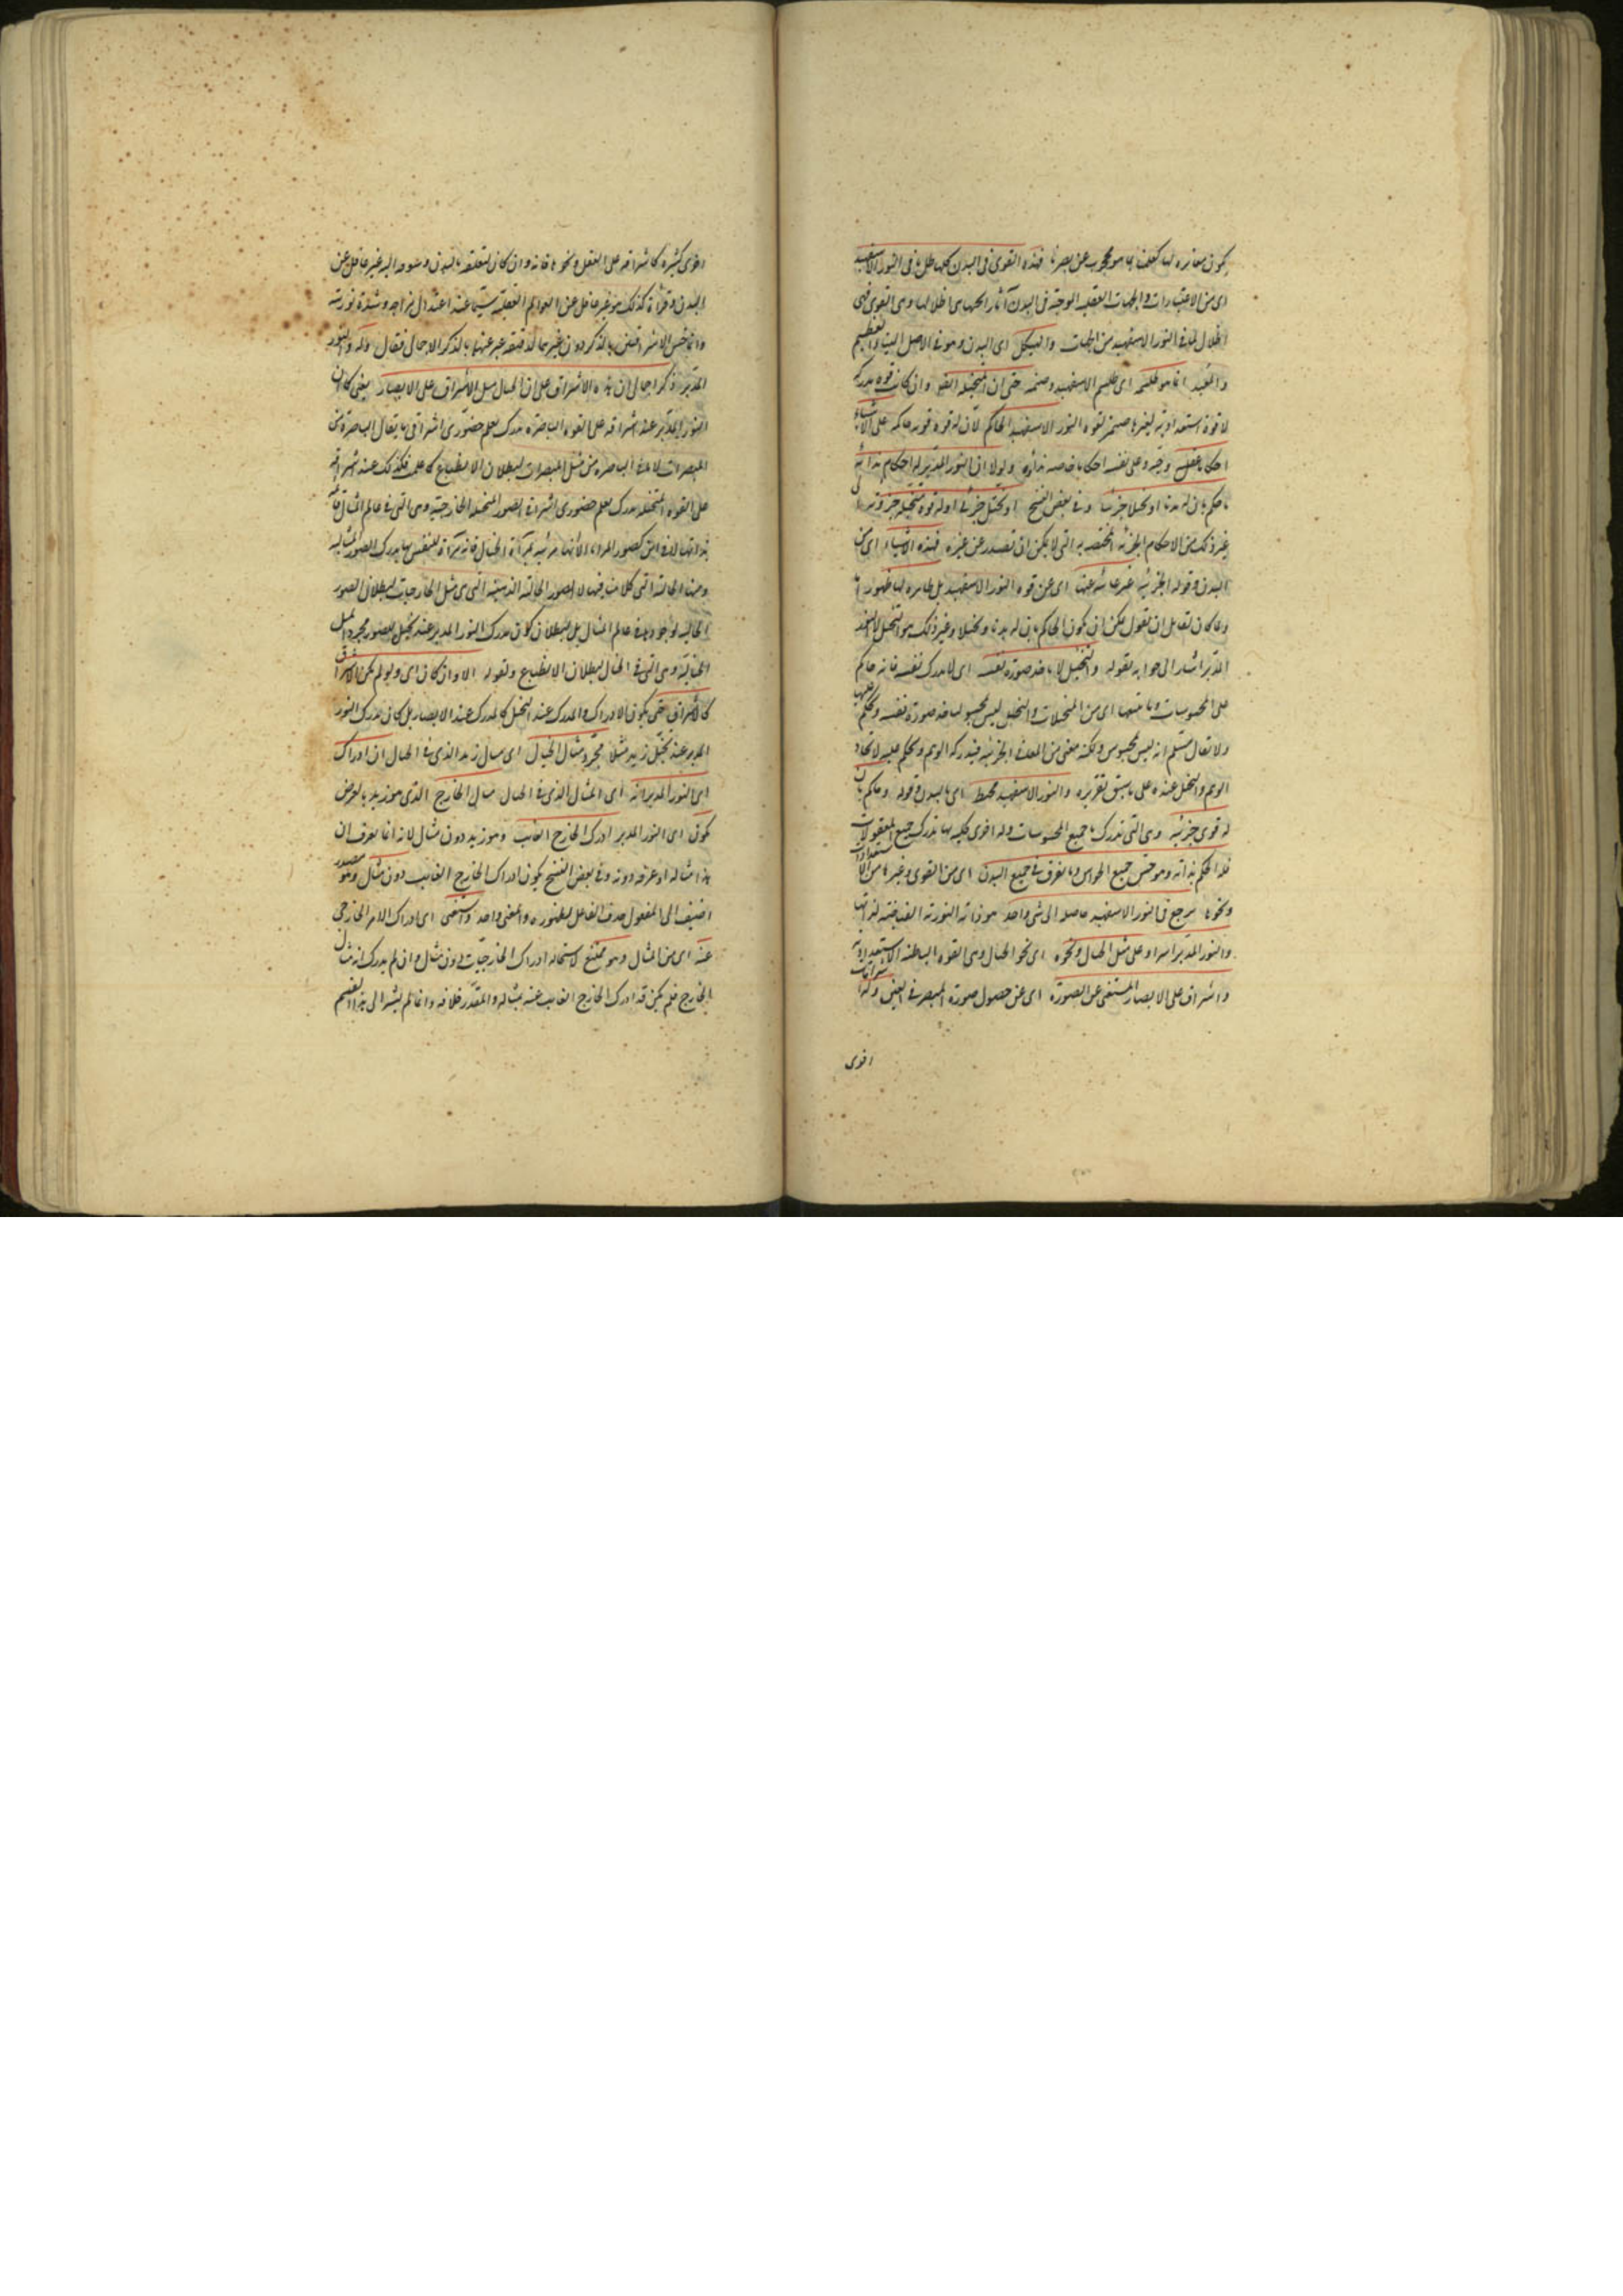 يكون مغايرة لها كعلمنا بما هو محجوب عن بصرنا فهذه القوى فى البدن كلها ظل ما فى النور الاسفهبد
اى من الاعتبارات والجهات العقلية الموجبة فى البدن آثار الجهات هى اظلالها وهى القوى فهى
اظلال لما فى النور الاسفهبد من الجهات والهيكل اى البدن وهو فى الاصل البيت العظيم
انما هو طلسمه اى طلسم الاسفهبد وصنمه حتى ان المتخيلة ايضا وان كانت قوة مدركة
لا قوة استعدادية لغيرها صنم لقوة النور الاسفهبد الحاكم لان له قوة قوية حاكمة على الاشياء
احكاما عقلية وعلى نفسه احكاما خاصة بذاته ولولا ان النور المدبر له احكام بذاته
ما حكم بان له بدنا او تخيلا جزئيا وفى بعض النسخ او تخيل جزئى او له قوة متخيلة جزئية الى
غير ذلك من الاحكام الجزئية المختصة به التى لا يمكن ان تصدر عن غيره فهذه الاشياء اى من
البدن وقوله الجزئية غير غائبة عنها اى عن قوة النور الاسفهبد بل ظاهرة لها ظهورا ما
ولما كان لقائل ان يقول يمكن ان يكون الحاكم بان له بدنا وتخيلا وغير ذلك هو التخيل لا النور
المدبر اشار الى جوابه بقوله والتخيل لا ياخذ صورة نفسه اى لا يدرك نفسه فانه حاكم
على المحسوسات وما منها اى من المتخيلات والتخيل ليس بمحسوس لياخذ صورة نفسه ويحكم عليها
ولا يقال مسلم انه ليس بمحسوس ولكنه معنى من المعانى الجزئية فيدركه الوهم ويحكم عليه لاتحاد
الوهم والتخيل عنده على ما سبق تقريره والنور الاسفهبد محيط اى بالبدن وقوله وحاكم بان
له قوى جزئية وهى التى تدرك بها جميع المحسوسات وله اخرى كلية بها تدرك جميع المعقولات
فله الحكم بذاته وهو حس جميع الحواس وما تفرق فى جميع البدن اى من القوى وغيرها من الاستعدادات
ونحوها يرجع فى النور الاسفهبد حاصله الى شىء واحد هو ذاته النورية الفياضة لذاتها
والنور المدبر اشراق على مثل الخيال ونحوه اى نحو الخيال وهى القوة الباطنة الاستعدادية
واشراق على الابصار المستغنى عن الصورة اى عن حصول صورة المبصر فى العين وله اشراقات
اخرى
اخرى كثيرة كاشراقه على العقل ونحوها فانه وان كان لتعلقه بالبدن وشوقه اليه غير غافل عن
البدن وقواه كذلك هو غير غافل عن العوالم العقلية سيما عند اعتدال مزاجه وشدة نوريته
وانما خص الاشراقين بالذكر دون غيرهما لدقيقة عبر عنها بالذكر الاجمالى فقال وله والنور
المدبر ذكر اجمالى ان هذه الاشراق على ان الخيال مثل الاشراق على الابصار يعنى كما ان
النور المدبر عند اشراقه على القوة الباصرة يدرك بعلم حضورى اشراقى ما يقابل الباصرة من
المبصرات لا ما فى الباصرة من مثل المبصرات لبطلان الانطباع كما علمت فكذلك عند اشراقه
على القوة المتخيلة يدرك بعلم حضورى اشراقى الصور المتخيلة الخارجية وهى التى فى عالم المثال قائمة
بذواتها لا فى اين كصور المرايا لانها مرئية بمرآة الخيال فانه مرآة للنفس بها يدرك الصور المثالية
ومنها الخيالية التى كلامنا فيها لا الصور الخيالية الذهنية التى هى مثل الخارجيات لبطلان الصور
الخيالية لوجودها فى عالم المثال بل لبطلان كون مدرك النور المدبر عند تخيل الصور مجرد المثل
الخيالية وهى التى فى الخيال لبطلان الانطباع ولقوله الا وان كان اى ولو لم يكن الاشراق
كالاشراق حتى يكون الادراك والمدرك عند التخيل كالمدرك عند الابصار بل كان مدرك النور
المدبر عند تخيل زيد مثلا مجرد مثال الخيال اى مثال زيد الذى فى الخيال ان ادراك
اى النور المدبر انه اى المثال الذى فى الخيال مثال الخارج الذى هو زيد بالعرض
يكون اى النور المدبر ادرك الخارج الغائب وهو زيد دون مثال لانه انما يعرف ان
هذا مثاله اذ عرفه دونه وفى بعض النسخ يكون ادراك الخارج الغائب دون مثال وهو مصدر
اضيف الى المفعول حذف الفاعل لظهوره والمعنى واحد واستغنى اى ادراك الامر الخارجى
عنه اى من المثال وهو ممتنع لاستحالة ادراك الخارجيات دون مثال وان لم يدرك انه مثال
الخارج فلم يكن قد ادرك الخارج الغائب عنه بمثاله والمقدر خلافه وانما لم يشر الى هذا القسم